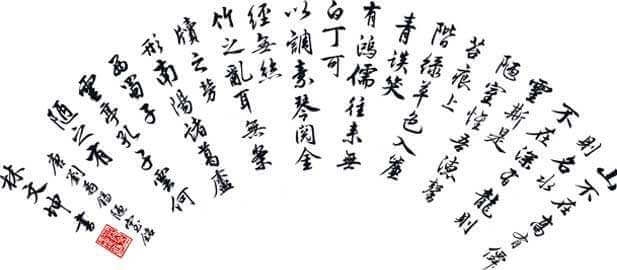 山不在高有僊
則名水
不在深有龍則
靈斯是
陋室惟吾德馨
苔痕上
階綠草色入簾
青談笑
有鴻儒往來無
白丁可
以調素琴閱金
經無絲
竹之亂耳無案
牘之勞
形南陽諸葛廬
西蜀子
雲亭孔子云何
陋之有
唐劉禹錫陋室銘
林文坤書